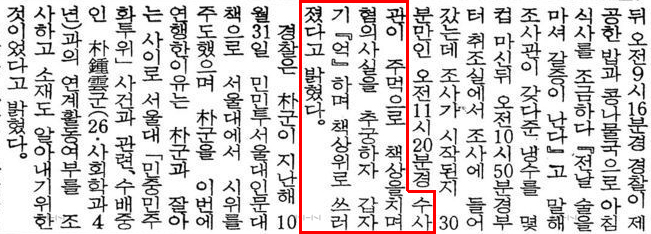 뒤 오전9시16분경 경찰이 제
공한 밥과 콩나물국으로 아침
식사를 조금하다 『전날 술을
마셔 갈증이 난다』고 말해
조사관이 갖다준 냉수를 몇
컵 마신뒤 오전10시50분경부
터 취조실에서 조사에 들어
갔는데 조사가 시작된지 30
분만인 오전11시20분경 수사
관이 주먹으로 책상을치며
혐의사실을 추궁하자 갑자
기 『억』하며 책상위로 쓰러
졌다고 밝혔다.
경찰은 朴군이 지난해 10
월31일 민민투서울대인문대
책으로 서울대에서 시위를
주도했으며 朴군을 이번에
연행한이유는 朴군과 잘아
는 사이로 서울대 「민중민주
화투위」사건과 관련, 수배중
인 朴鍾雲군(26·사회학과4
년)과의 연계활동여부를 조
사하고 소재도 알아내기위한
것이었다고 밝혔다.